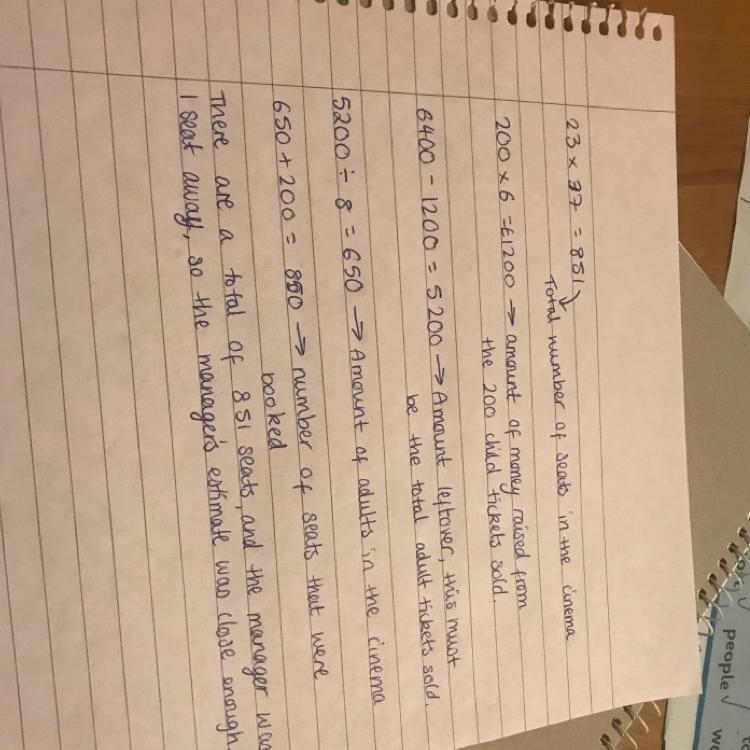 23 × 37 = 851
Total number of seats in the cinema
200 × 6 = £1200 → amount of money raised from
the 200 child tickets sold.
6400 - 1200 = 5200 → Amount leftover, this must
be the total adult tickets sold.
5200 ÷ 8 = 650 → Amount of adults in the cinema
650 + 200 = 850 → number of seats that were
booked
There are a total of 851 seats, and the manager was
1 seat away, so the managers estimate was close enough.
people